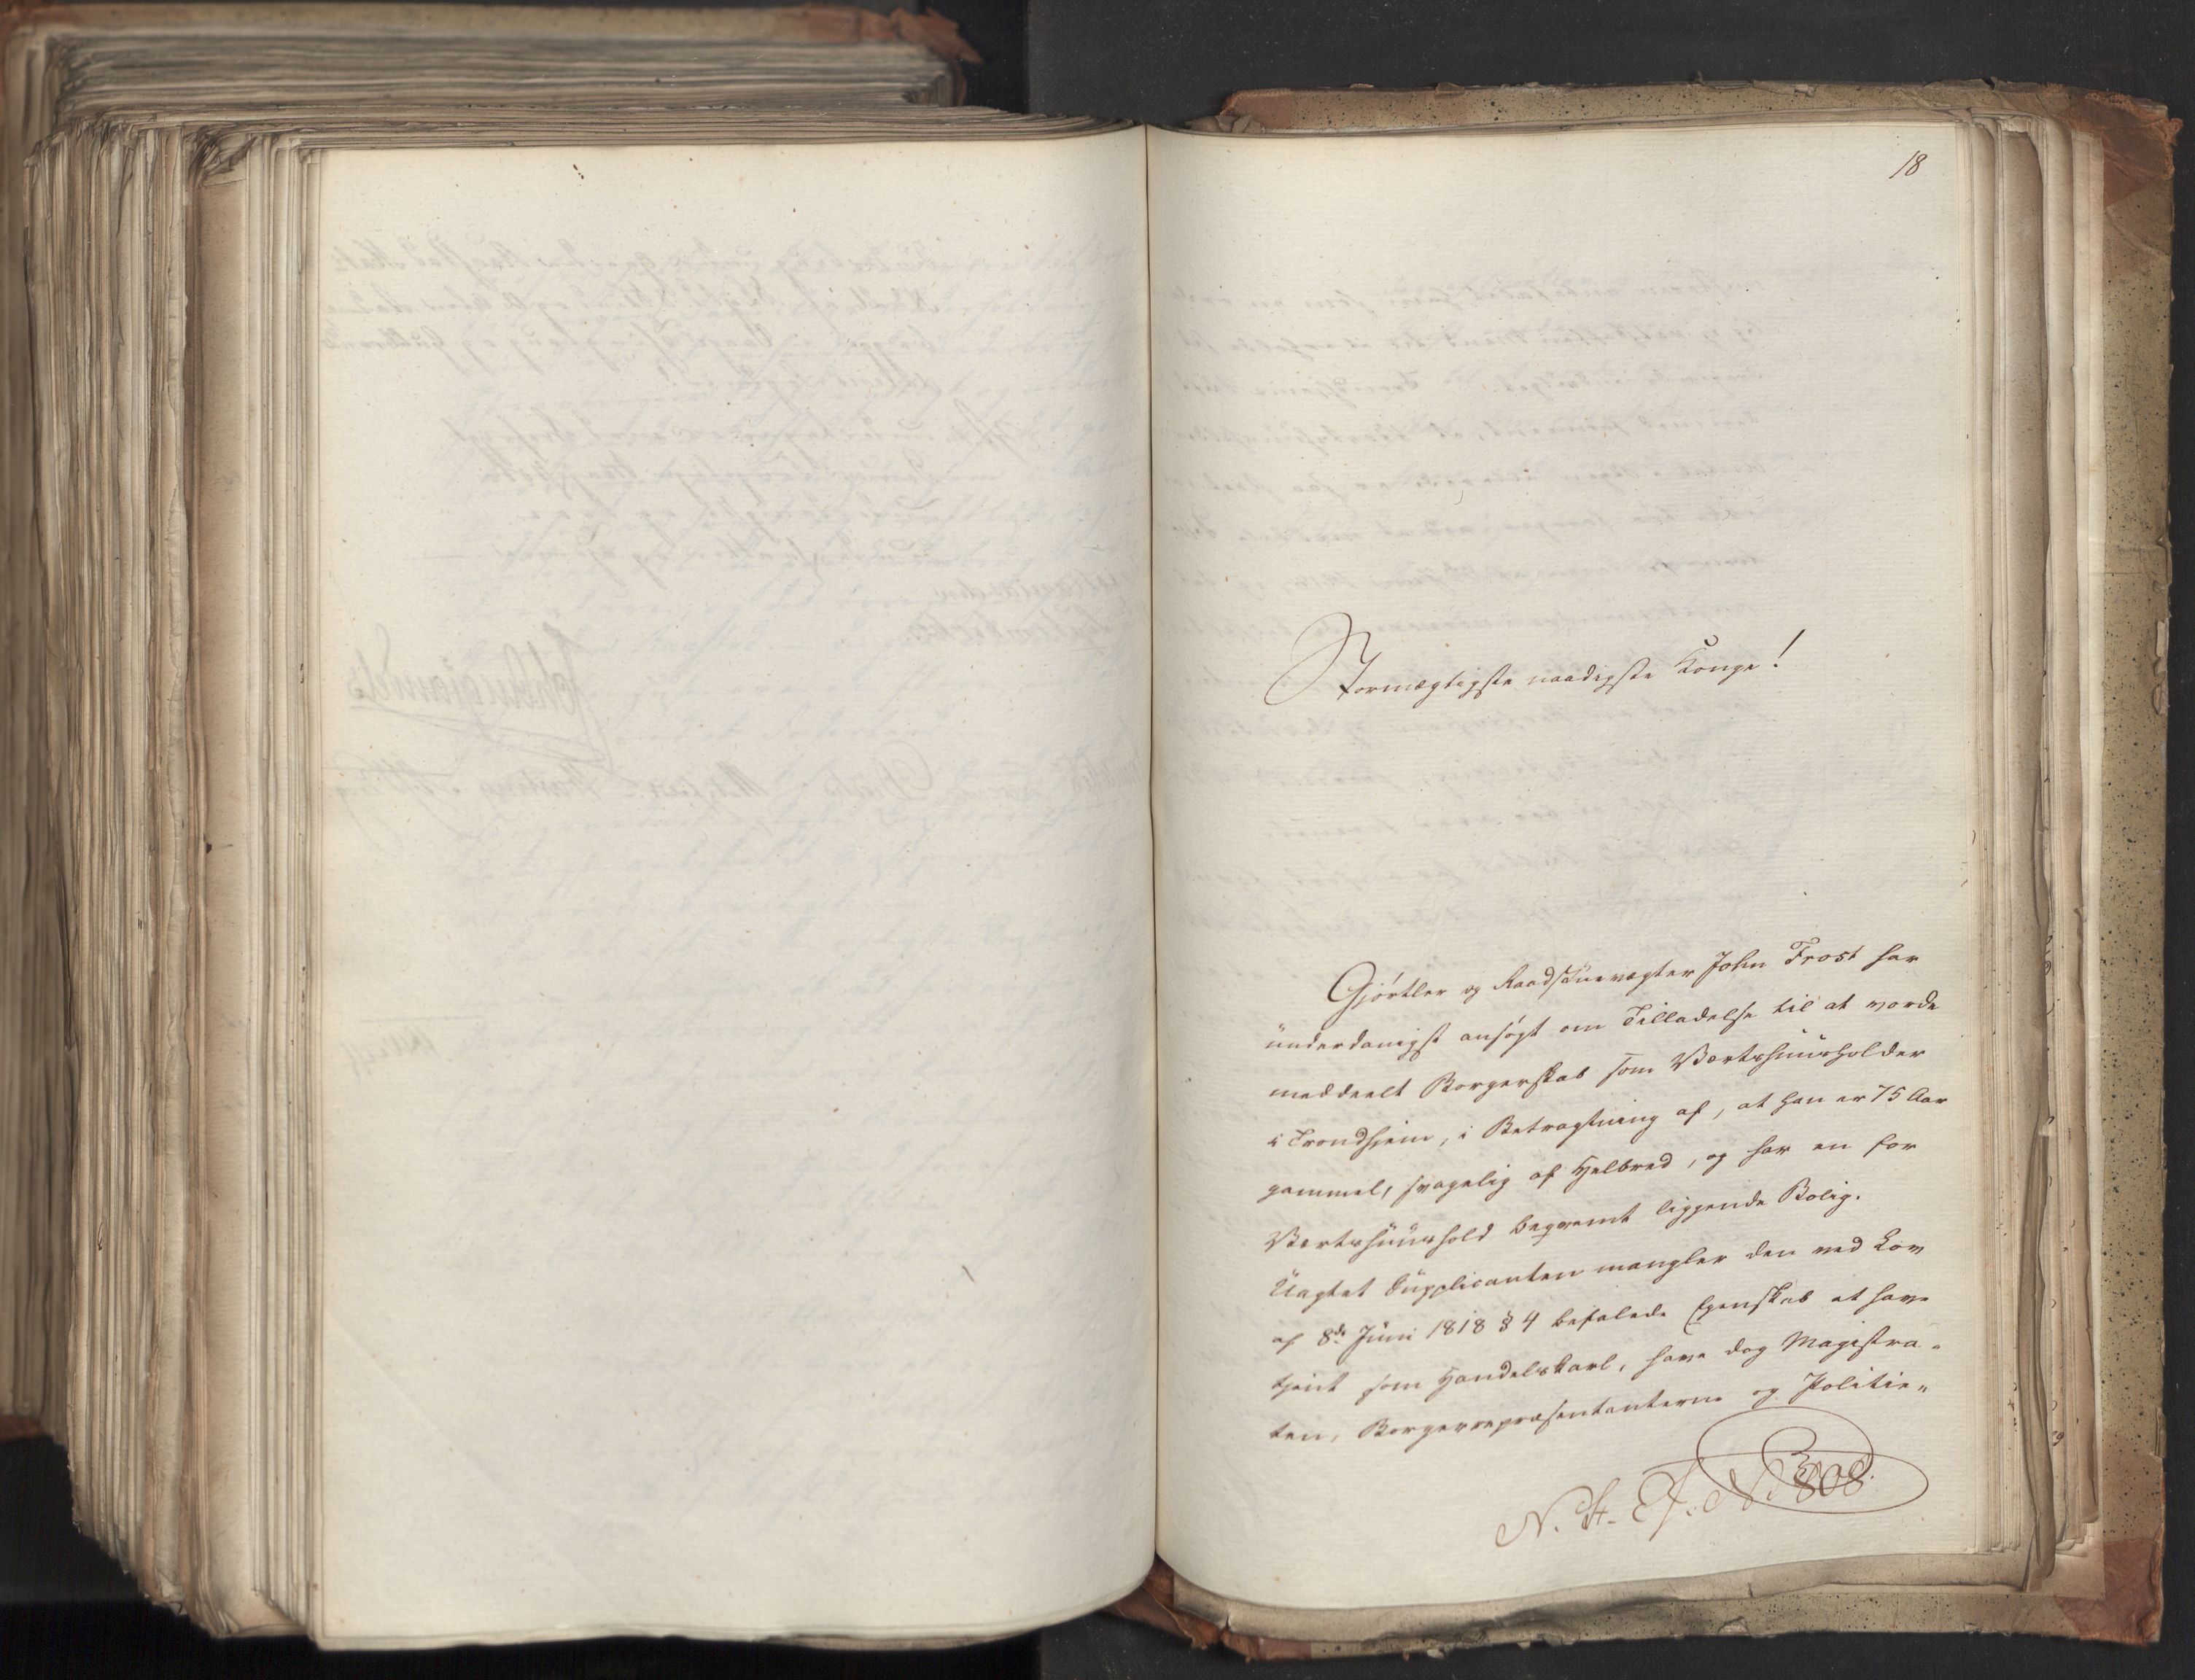 18
Stormægtigste naadigste Konge!
Gjørtler og Raadstuevægter John Frost har
ünderdanigst ansøgt om Tilladelse til at vorde
meddeelt Borgerskab som Værtshüüsholder
i Trondhjem, i Betragtning af, at han er 75 Aar
gammel, svagelig af Helbred, og har en for
Værtshüüshold beqvemt liggende Bolig.
Uagtet Supplicanten mangler den ved Lov
af 8de Juni 1818 § 4 befalede Egenskab at have
tjent som Handelskarl, have dog Magistra-
ten, Borgerrepræsentanterne og Politie-
N. St. C. J. No 808.